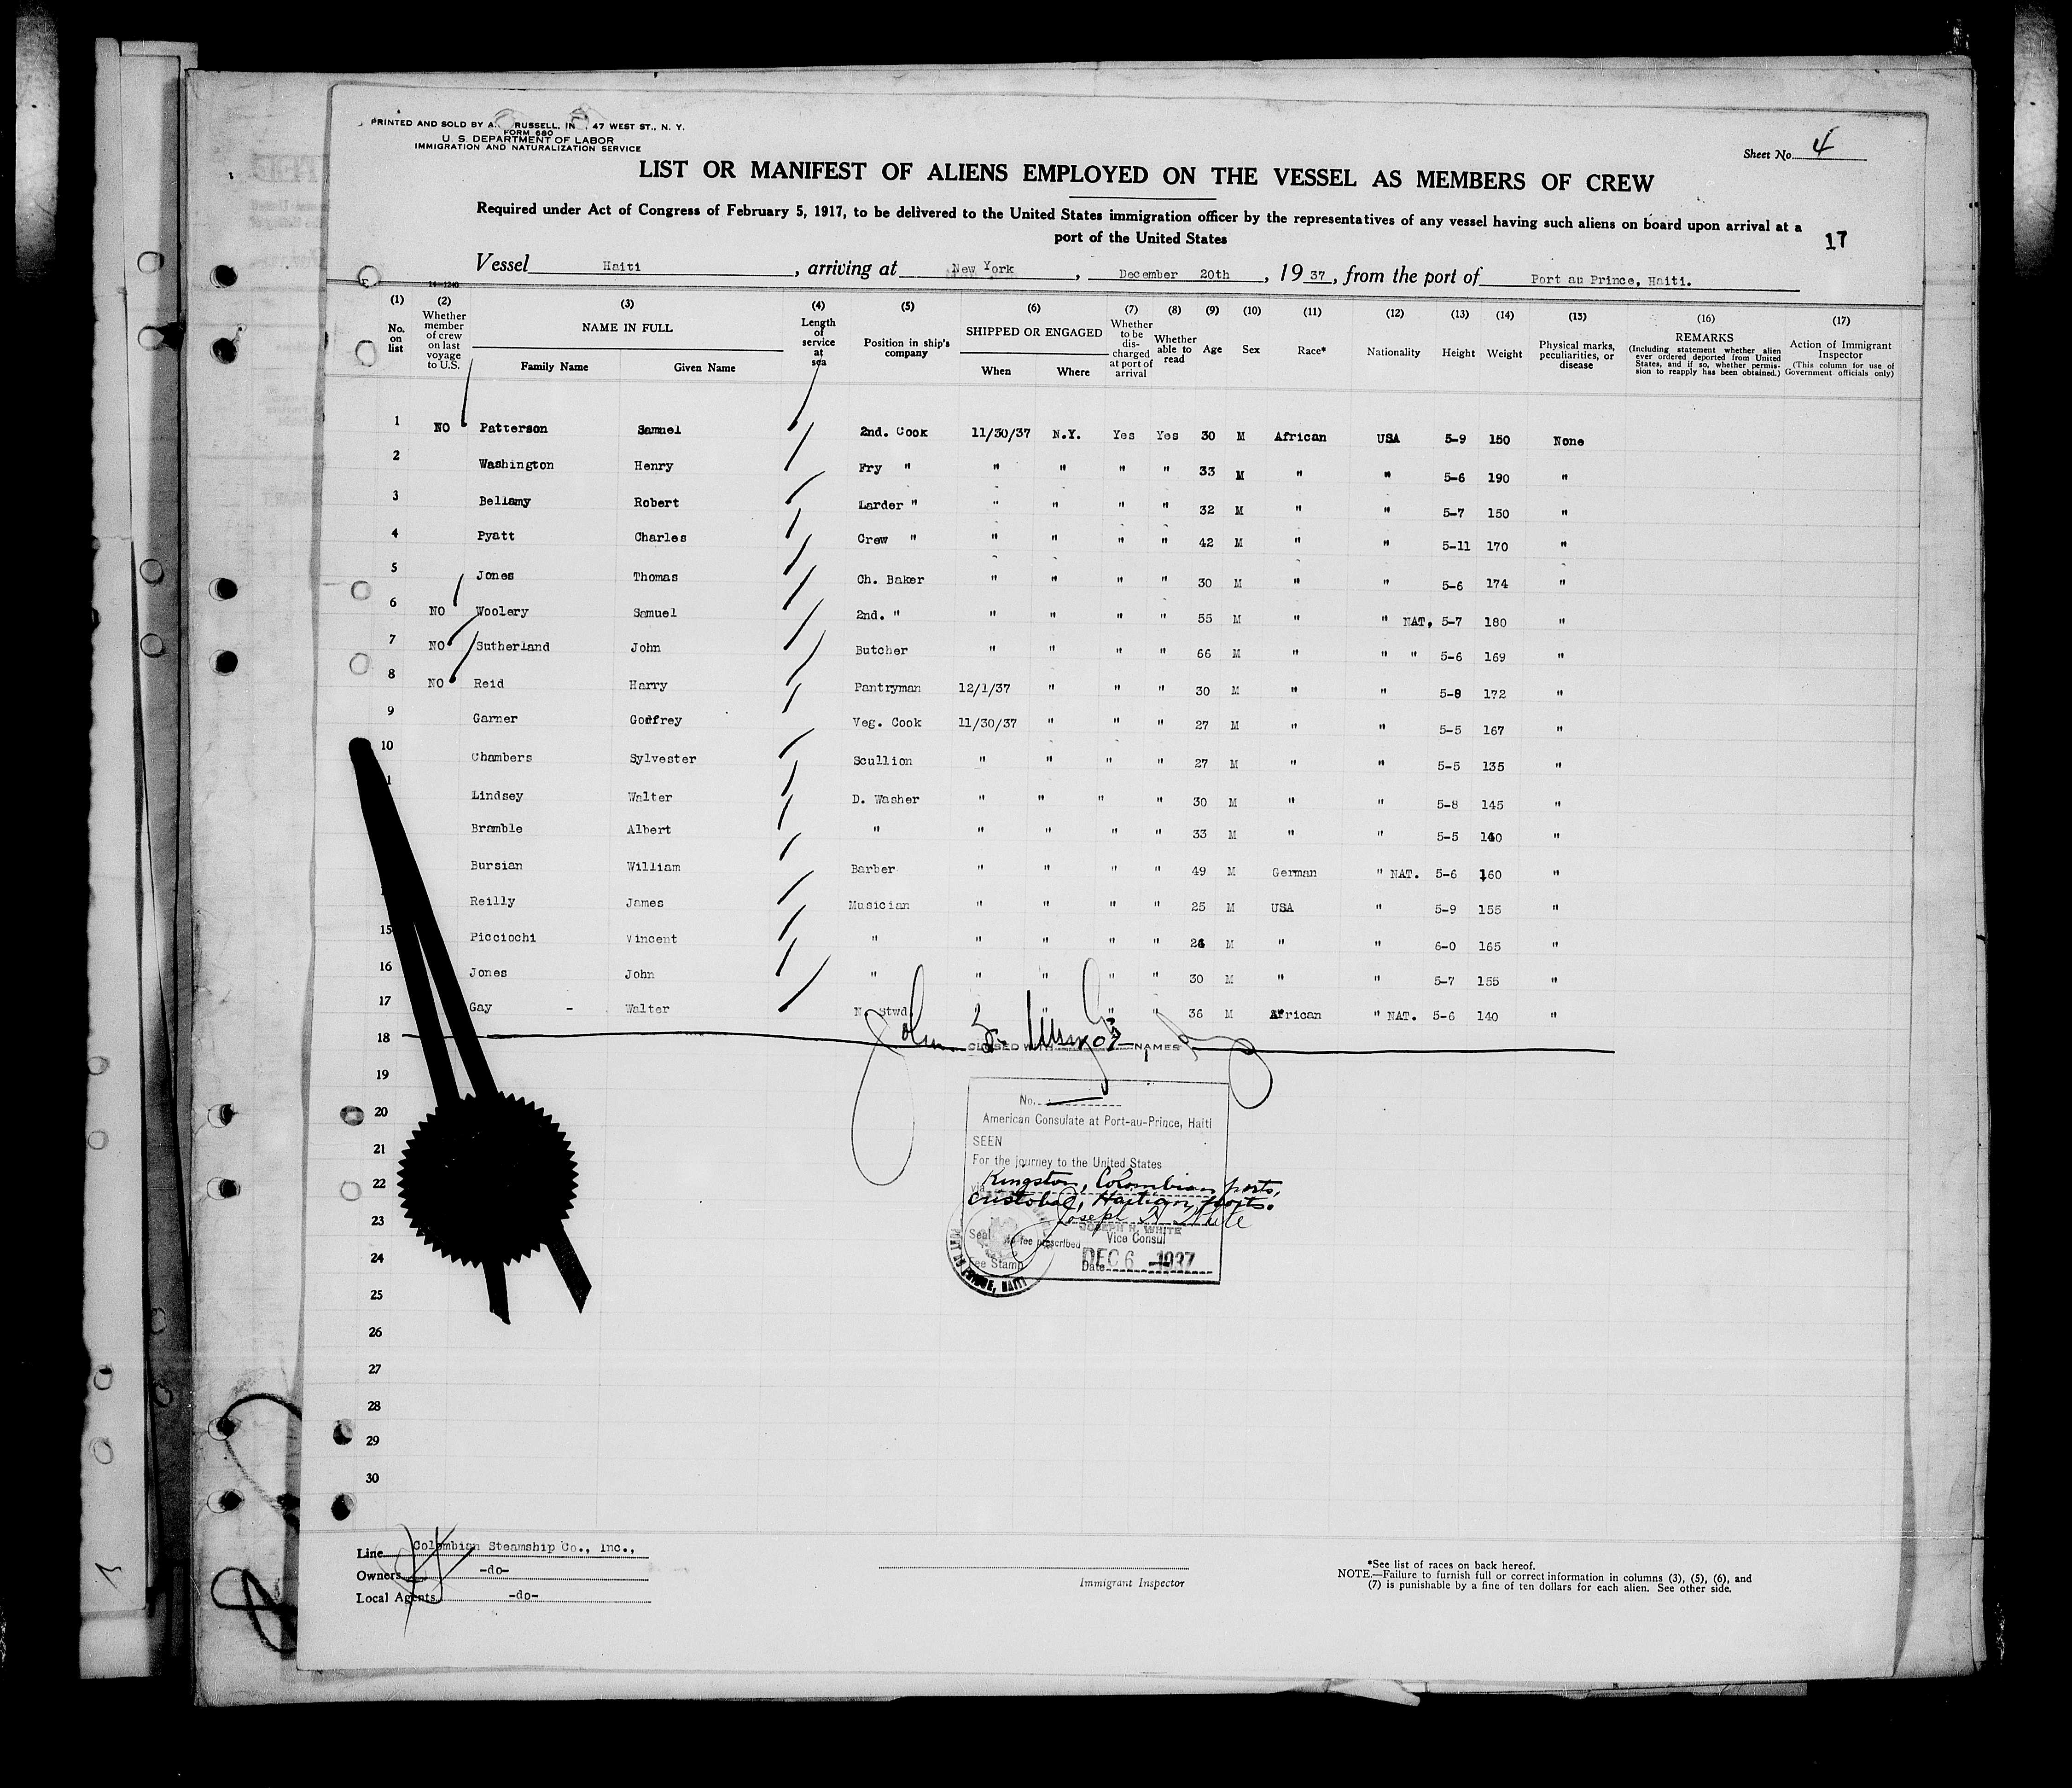 PRINTED AND SOLD BY A. RUSSELL, IN 47 WEST ST., N. Y.
FORM 680
U. S. DEPARTMENT OF LABOR
IMMIGRATION AND NATURALIZATION SERVICE
Sheet No. 4
LIST OR MANIFEST OF ALIENS EMPLOYED ON THE VESSEL AS MEMBERS OF CREW
Required under Act of Congress of February 5, 1917, to be delivered to the United States immigration officer by the representatives of any vessel having such aliens on board upon arrival at a
port of the United States
17
Vessel Haiti, arriving at New York, December 20th, 1937, from the port of Port au Prince, Haiti.
14-1240
(1) (2) (3) (4) (5) (6) (7) (8) (9) (10) (11) (12) (13) (14) (15) (16) (17)
No. on list
Whether member of crew on last voyage to U.S.
NAME IN FULL
Family Name Given Name
Length of service at sea
Position in ship's company
SHIPPED OR ENGAGED
When Where
Whether to be discharged at port of arrival
Whether able to read
Age
Sex
Race*
Nationality
Height
Weight
Physical marks, peculiarities, or disease
REMARKS
(Including statement whether alien ever ordered deported from United States, and if so, whether permission to reapply has been obtained.)
Action of Immigrant Inspector
(This column for use of Government officials only)
1 NO Patterson Samuel 2nd. Cook 11/30/37 N.Y. Yes Yes 30 M African USA 5-9 150 None
2 Washington Henry Fry " " " " " 33 M " " 5-6 190 "
3 Bellamy Robert Larder " " " " " 32 M " " 5-7 150 "
4 Pyatt Charles Crew " " " " " 42 M " " 5-11 170 "
5 Jones Thomas Ch. Baker " " " " 30 M " " 5-6 174 "
6 NO Woolery Samuel 2nd. " " " " " 55 M " " NAT. 5-7 180 "
7 NO Sutherland John Butcher " " " " 66 M " " " 5-6 169 "
8 NO Reid Harry Pantryman 12/1/37 " " " 30 M " " 5-8 172 "
9 Garner Godfrey Veg. Cook 11/30/37 " " " 27 M " " 5-5 167 "
10 Chambers Sylvester Scullion " " " " 27 M " " 5-5 135 "
1 Lindsey Walter D. Washer " " " " 30 M " " 5-8 145 "
Bramble Albert " " " " " 33 M " " 5-5 140 "
Bursian William Barber " " " " 49 M German " NAT. 5-6 160 "
Reilly James Musician " " " " 25 M USA " 5-9 155 "
15 Picciochi Vincent " " " " " 26 M " " 6-0 165 "
16 Jones John " " " " " 30 M " " 5-7 155 "
17 Gay - Walter N. Stwd " " " " 36 M African " NAT. 5-6 140 "
18
CLOSED WITH NAMES
19
20
21
22
23
24
25
26
27
28
29
30
No.
American Consulate at Port-au-Prince, Haiti
SEEN
For the journey to the United States
via Kingston, Colombian ports,
Cristobal, Haitian ports.
Joseph R White
JOSEPH R. WHITE
Vice Consul
Seal No fee prescribed
Fee Stamp
Date DEC 6 1937
PORT AU PRINCE, HAITI
Line Colombian Steamship Co., Inc.,
Owners -do-
Local Agents -do-
Immigrant Inspector
*See list of races on back hereof.
NOTE.—Failure to furnish full or correct information in columns (3), (5), (6), and
(7) is punishable by a fine of ten dollars for each alien. See other side.